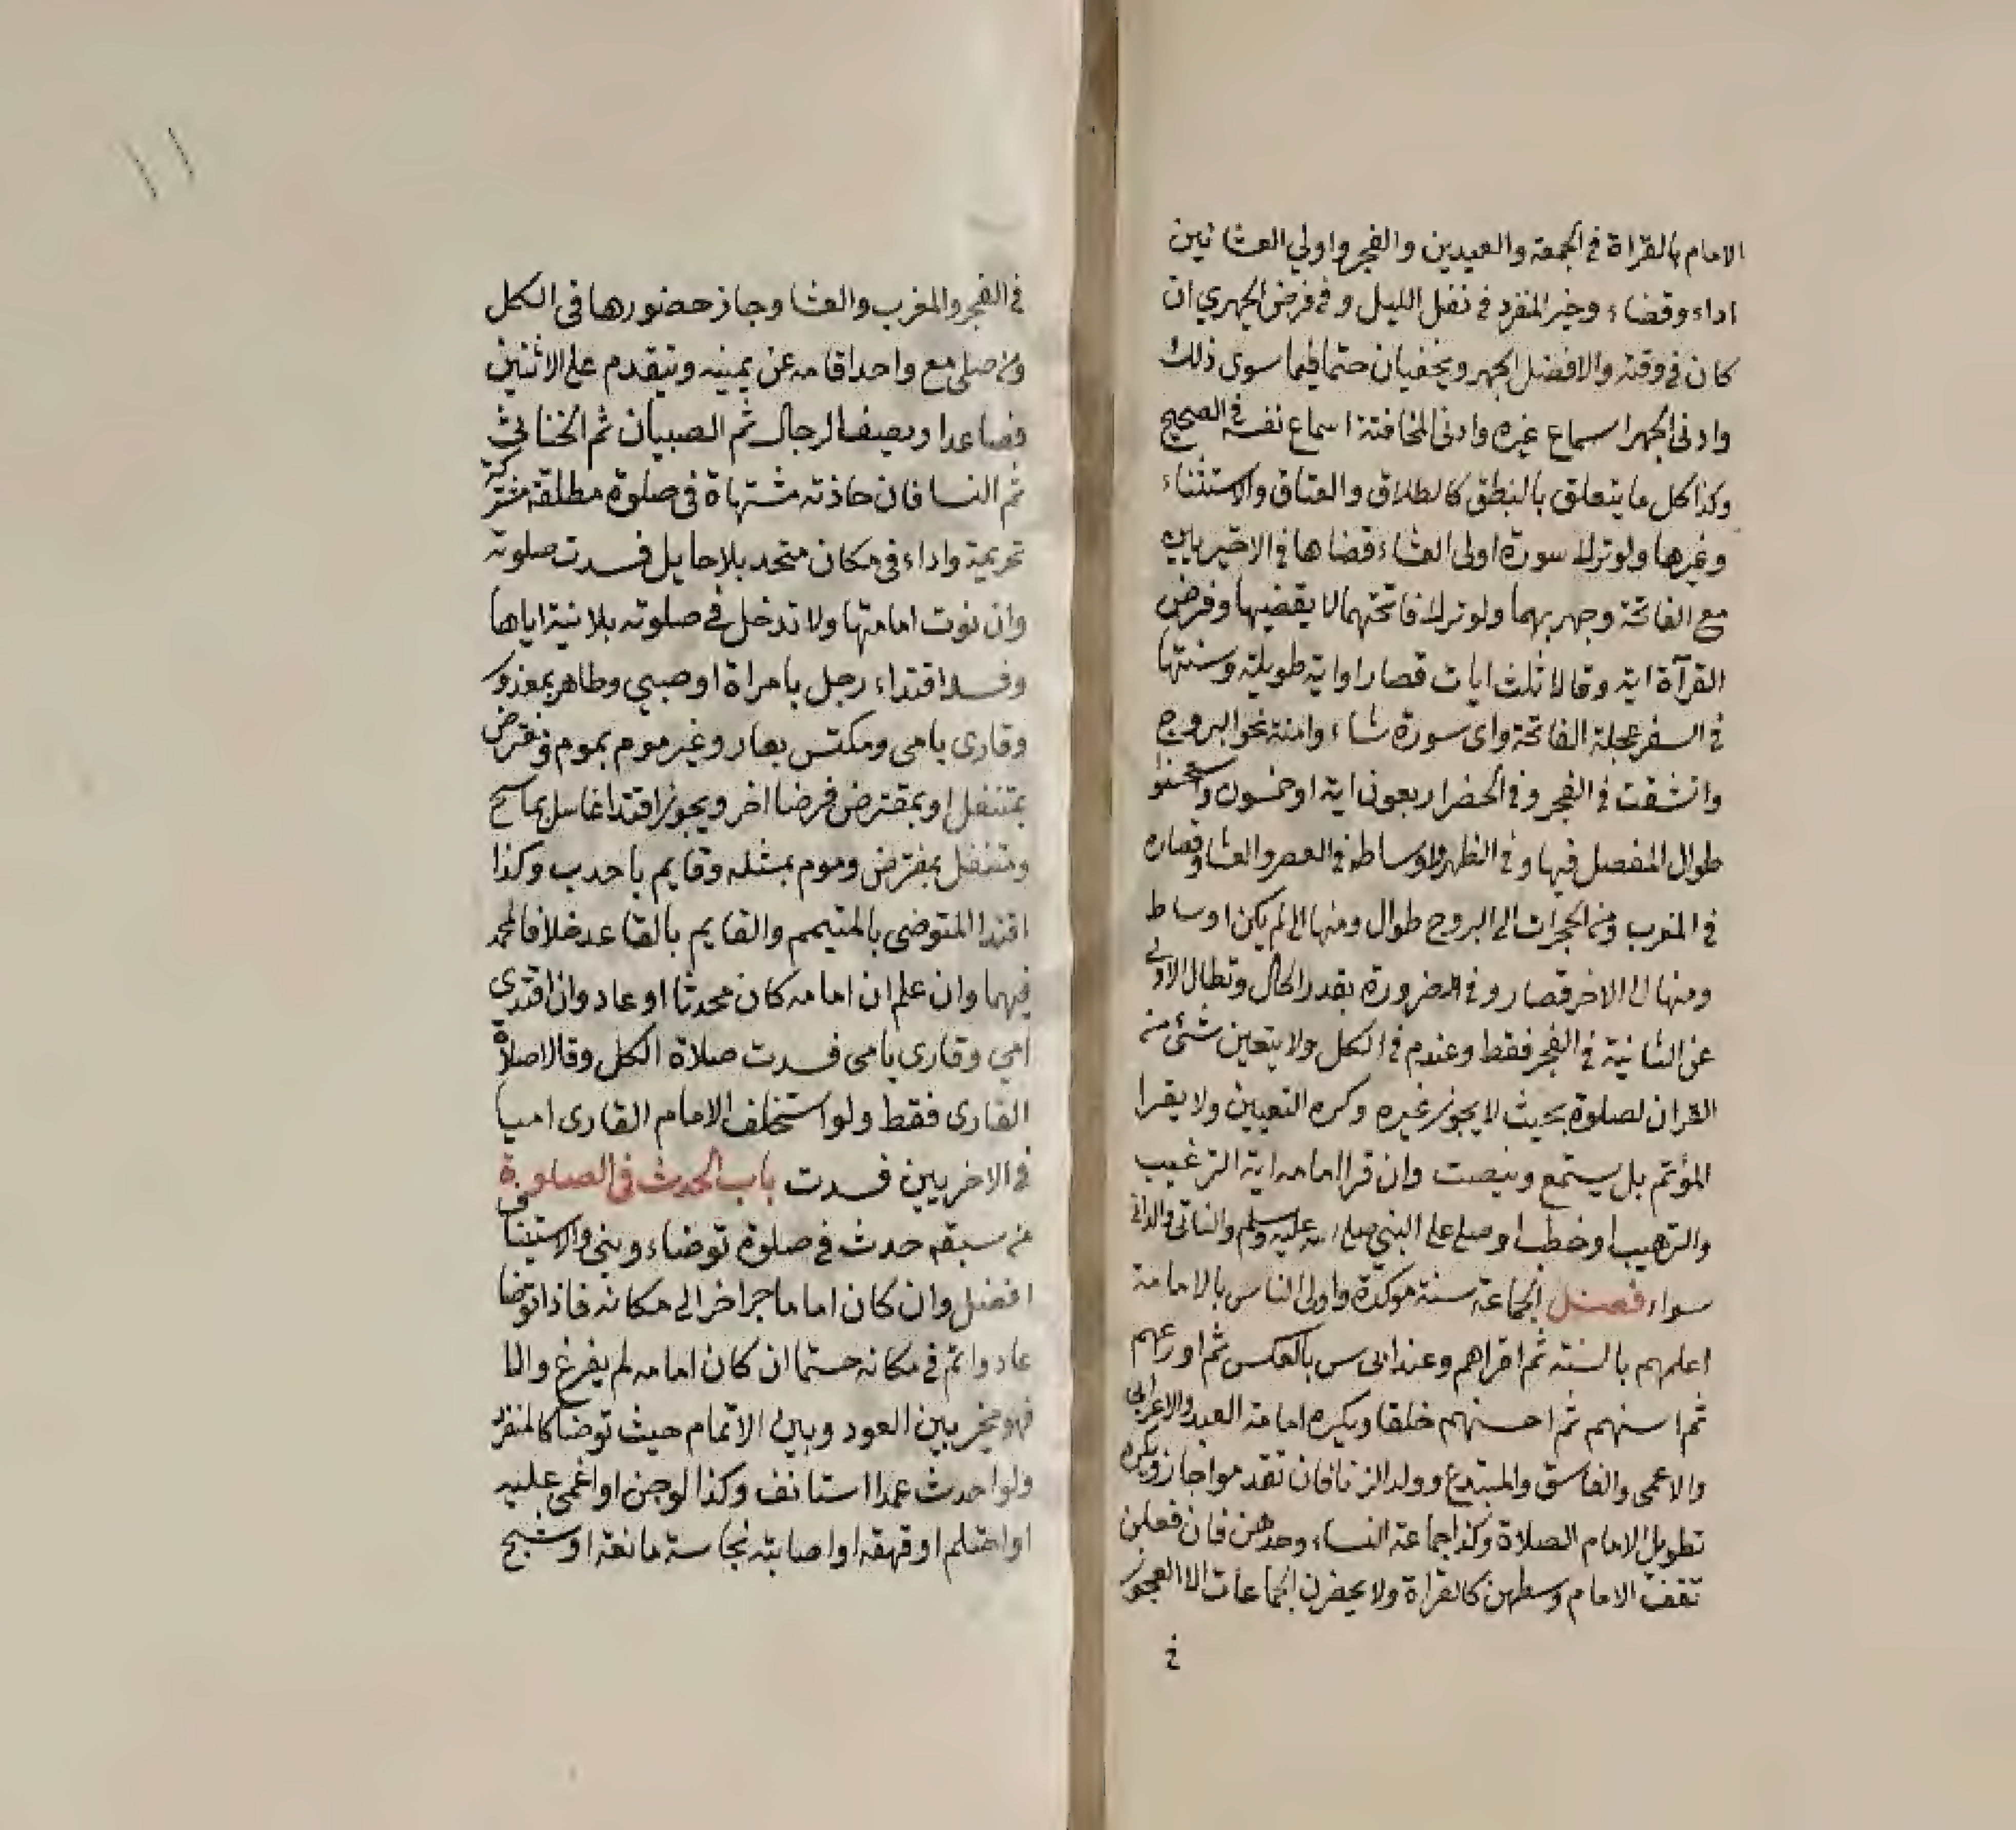 الامام بالقراة في الجمعة والعيدين والفجر واولي العشائين
اداء وقضاء وخير المنفرد في نفل الليل وفي فرض الجهري ان
كان في وقته والافضل الجهر ويخفيان حتما فيما سوى ذلك
وادنى الجهر اسماع غيره وادنى المخافتة اسماع نفسه في الصحيح
وكذا كل ما يتعلق بالنطق كالطلاق والعتاق والاستثناء
وغيرها ولو ترك سورة اولى العشاء قضاها في الاخيريين
مع الفاتحة وجهر بهما ولو ترك فاتحتهما لا يقضيها وفرض
القرآة اية وقالا ثلث ايات قصار او اية طويلة وسنتها
في السفر عجلة الفاتحة واى سورة شاء وامنة نحو البروج
وانشقت في الفجر وفي الحضر اربعون اية او خمسون واستحسنوا
طوال المفصل فيها وفي الظهر واوساطه في العصر والعشا وقصاره
في المغرب ومن الحجرات الى البروج طوال ومنها الى لم يكن اوساط
ومنها الى الاخر قصار وفي الضرورة بقدر الحال وتطال الاولى
على الثانية في الفجر فقط وعندم في الكل ولا يتعين شئ من
القران لصلوة بحيث لا يجوز غيره وكره التعيين ولا يقرا
المؤتم بل يستمع وينصت وان قرا امامه اية الترغيب
والترهيب او خطب او صلى على النبي صلى الله عليه وسلم والنائى والدانى
سواء فصل الجماعة سنة موكدة واولى الناس بالامامة
اعلمهم بالسنة ثم اقراهم وعند ابى س بالعكس ثم اورعهم
ثم اسنهم ثم احسنهم خلقا ويكره امامة العبد والاعرابى
والاعمى والفاسق والمبتدع وولد الزنا فان تقدموا جاز ويكره
تطويل الامام الصلاة وكذا جماعة النساء وحدهن فان فعلن
تقف الامام وسطهن كالعراة ولا يحضرن الجماعات الا العجوز
في
١١
في الفجر والمغرب والعشا وجاز حضورها في الكل
ومن صلى مع واحد اقامه عن يمينه ويتقدم على الاثنين
فصاعدا ويصف الرجال ثم الصبيان ثم الخناثى
ثم النسا فان حاذته مشتهاة فى صلوة مطلقة مشتركة
تحريمة واداء فى مكان متحد بلا حايل فسدت صلوته
وان نوت امامتها ولا تدخل في صلوته بلا نية اياها
وفسد اقتداء رجل بامراة او صبي وطاهر بمعذور
وقارى بامى ومكتس بعار وغير موم بموم ومفترض
بمتنفل او بمفترض فرضا اخر ويجوز اقتدا غاسل بماسح
ومتنفل بمفترض وموم بمثله وقايم باحدب وكذا
اقتدا المتوضى بالمتيمم والقايم بالقاعد خلافا لمحمد
فيهما وان علم ان امامه كان محدثا اعاد وان اقتدى
امي وقارى بامى فسدت صلاة الكل وقالا صلاة
القارى فقط ولو استخلف الامام القارى اميا
في الاخريين فسدت باب الحدث فى الصلوة
من سبقه حدث في صلوة توضاء وبنى والاستيناف
افضل وان كان اماما جر اخر الى مكانه فاذا توضا
عاد واتم فى مكانه حتما ان كان امامه لم يفرغ والا
فهو مخير بين العود وبين الاتمام حيث توضا كالمنفرد
ولو احدث عمدا استانف وكذا لو جن او اغمى عليه
او احتلم او قهقه او اصابته نجاسة مانعة او شج